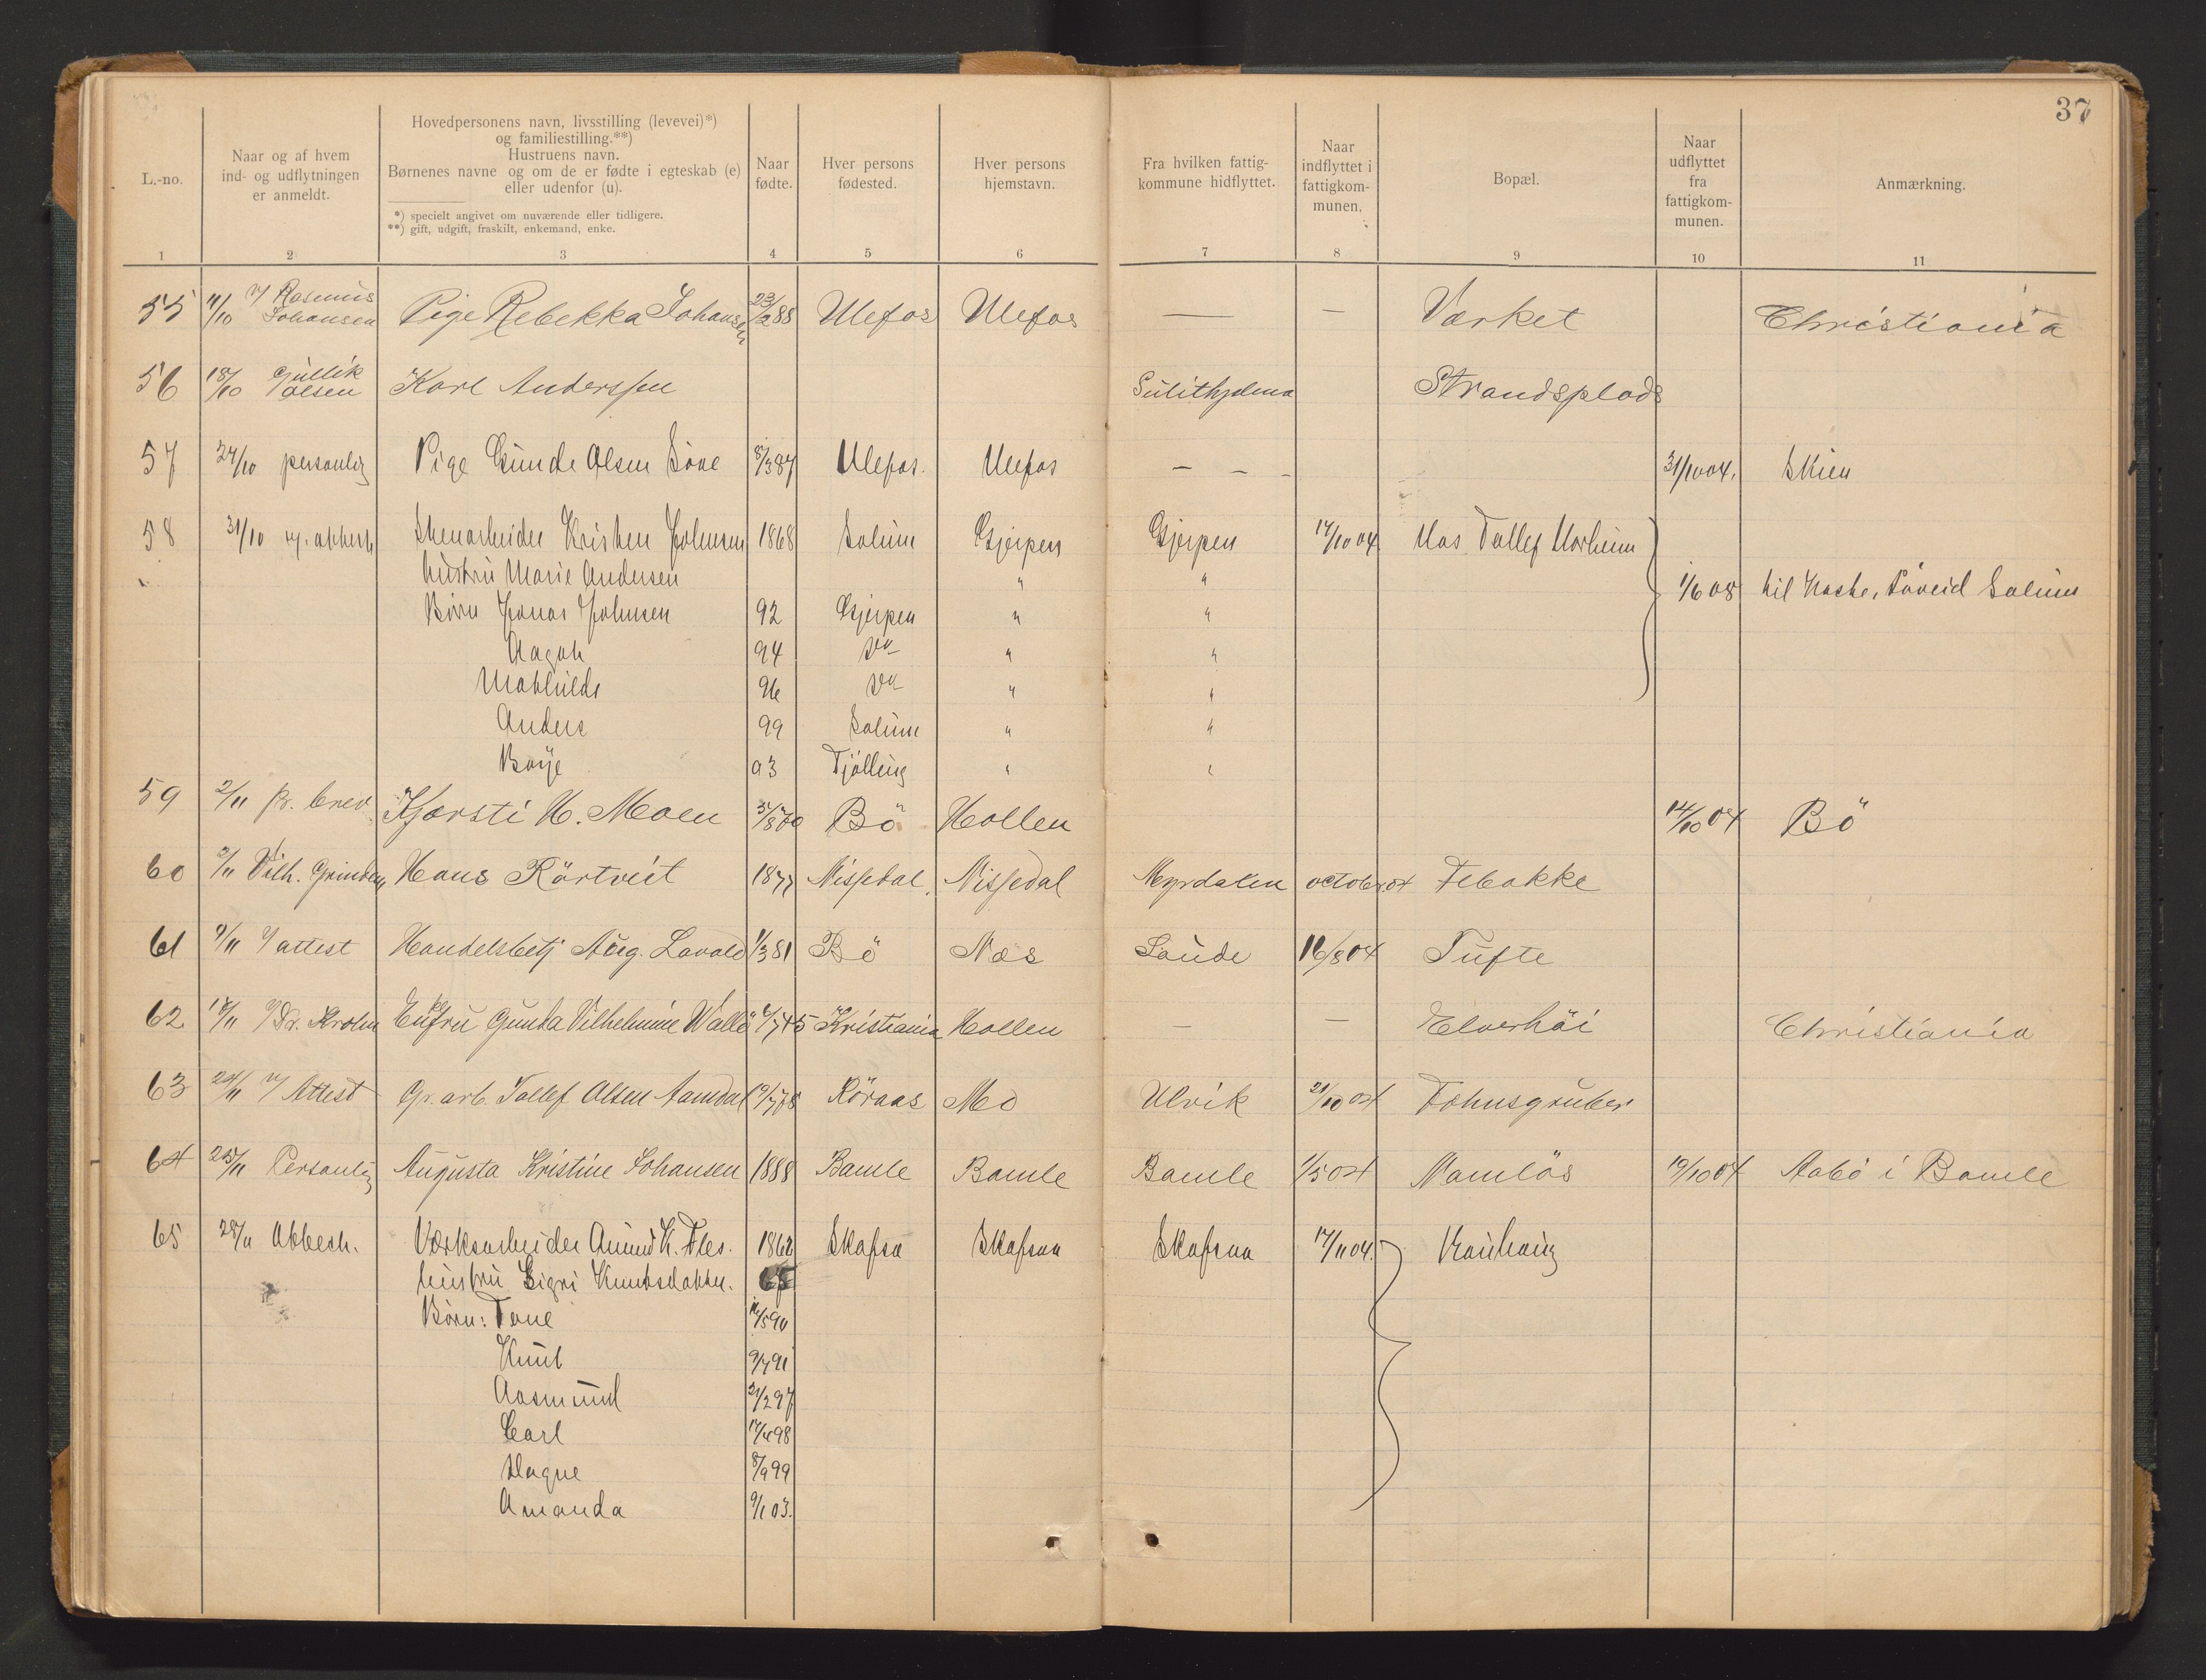 37
L.-no.
Naar og af hvem
ind- og udflytningen
er anmeldt.
Hovedpersonens navn, livsstilling (levevei)*)
og familiestilling.**)
Hustruens navn.
Børnenes navne og om de er fødte i egteskab (e)
eller udenfor (u).
*) specielt angivet om nuværende eller tidligere.
**) gift, udgift, fraskilt, enkemand, enke.
Naar
fødte.
Hver persons
fødested.
Hver persons
hjemstavn.
Fra hvilken fattig-
kommune hidflyttet.
Naar
indflyttet i
fattigkom-
munen.
Bopæl.
Naar
udflyttet
fra
fattigkom-
munen.
Anmærkning.
1 2 3 4 5 6 7 8 9 10 11
55 11/10 v/ Rasmus Johansen Pige Rebekka Johansen 23/2 88 Ulefos Ulefos — — Værket Christiania
56 18/10 Gullik Olsen Karl Anderssen Sulithjelma Strandsplads
57 24/10 personlig Pige Gunde Olsen Söve 8/3 87 Ulefos. Ulefos — — — 31/10 04. Skien
58 31/10 Kristen Johnsen 1868 Solum Gjerpen Gjerpen 14/10 04 Tallef
hustru Marie Andersen " "
Börn Jonas Johnsen 92 Gjerpen " " 1/6 08 Solum
94 do " "
Mathilde 96 do " "
Anders 99 Solum " "
Borje 03 Tjölling " "
59 2/11 pr. brev Kjærsti H. Moen Bö Hollen 14/10 04 Bö
60 2/11 Vilh. Grinden Hans Rörtveit 1877 Nissedal Nissedal Myrdalen october 04 Febakke
61 9/11 v/ attest Handelsbetj Aug. Lavold 1/3 81 Bö Næs Saude 16/8 04 Tufte
62 v/ Dr. Krohn Enkefru Gunda Vilhelmine Wallö 6/7 45 Kristiania Hollen — — Elverhöi Christiania
63 24/11 v/ Attest Gr. arb. Tallef Olsen Aamdal 19/7 78 Röraas Mo Ulvik 21/10 04 Fehnsgruber
64 25/11 Personlig Augusta Kristine Johansen 1888 Bamle Bamle Bamle 1/5 04 Namlös 19/10 04 Aabö i Bamle
65 28/11 Værksarbeider Amund K. Fles. 1862 Skafsa Skafsaa Skafsaa 17/11 04.
hustru Sigri Knutsdatter.
Börn: Tone 16/5 90
Knut 9/7 91
Aasmund 21/2 97
Carl 17/4 98
8/9 99
Amanda 9/1 03.